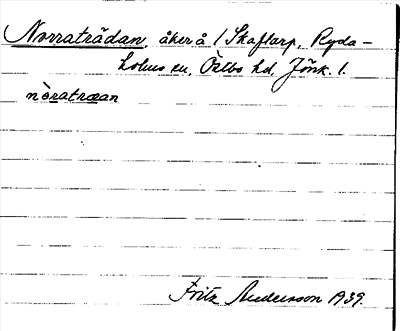 Norraträdan, åker å / Skaftarp, Ryda-
holms sn, Östbo hd, Jönk. l.
nòratræan
Fritz Andersson 1939.